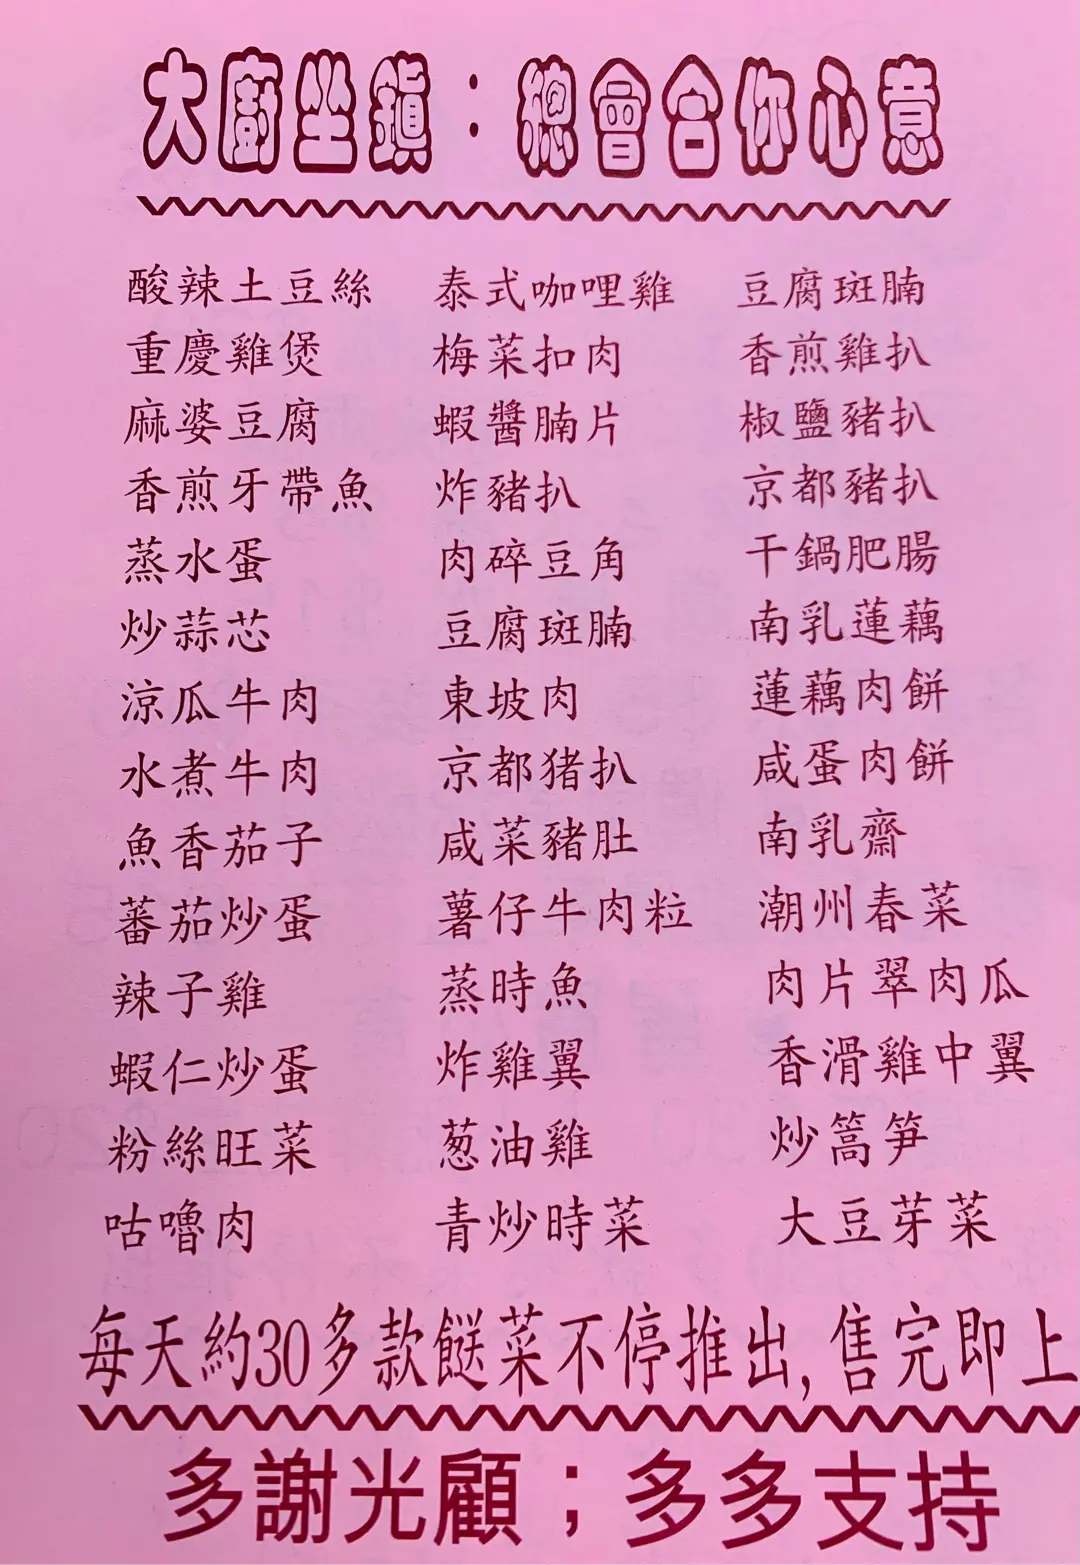 大廚坐鎮：總會合你心意
酸辣土豆絲 泰式咖哩雞 豆腐斑腩
重慶雞煲 梅菜扣肉 香煎雞扒
麻婆豆腐 蝦醬腩片 椒鹽豬扒
香煎牙帶魚 炸豬扒 京都豬扒
蒸水蛋 肉碎豆角 干鍋肥腸
炒蒜芯 豆腐斑腩 南乳蓮藕
涼瓜牛肉 東坡肉 蓮藕肉餅
水煮牛肉 京都猪扒 咸蛋肉餅
魚香茄子 咸菜豬肚 南乳齋
蕃茄炒蛋 薯仔牛肉粒 潮州春菜
辣子雞 蒸時魚 肉片翠肉瓜
蝦仁炒蛋 炸雞翼 香滑雞中翼
粉絲旺菜 葱油雞 炒篙笋
咕嚕肉 青炒時菜 大豆芽菜
每天約30多款餸菜不停推出, 售完即上
多謝光顧；多多支持